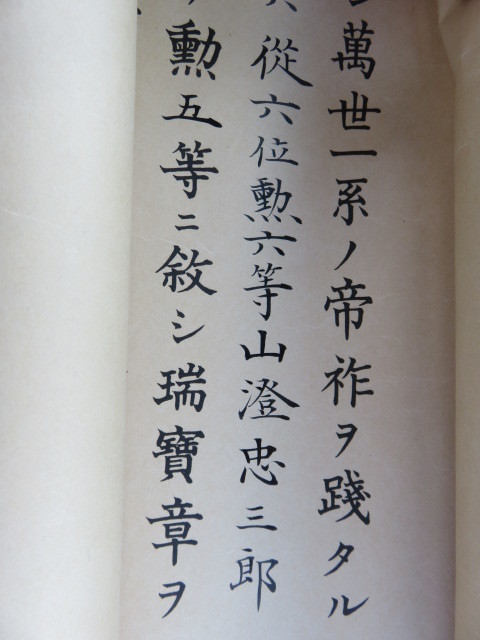 萬世一系ノ帝祚ヲ踐タル
從六位勲六等山澄忠三郎
勲五等ニ敘シ瑞寶章ヲ